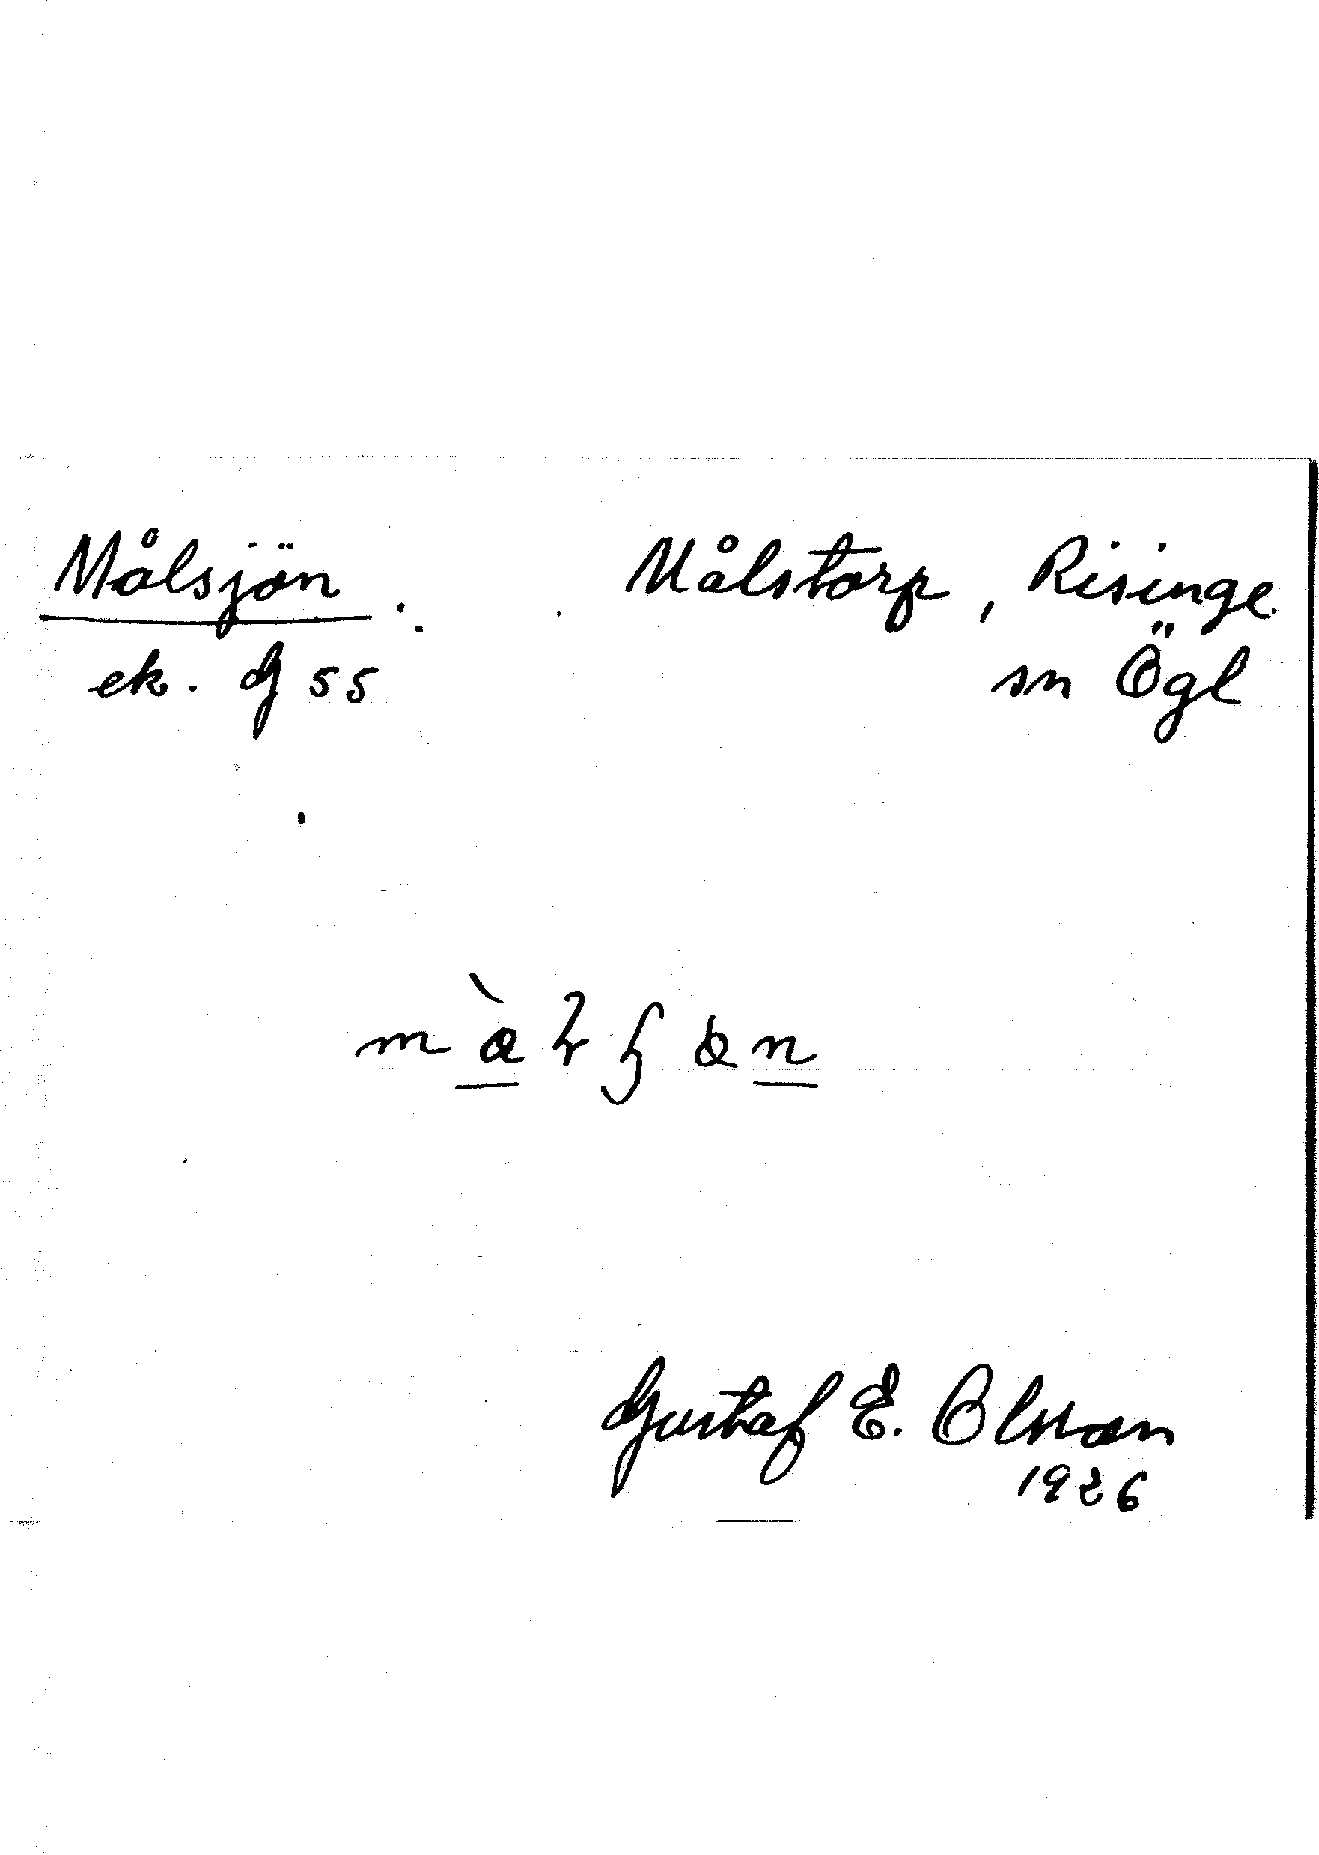 Målsjön Målstorp, Risinge
ek. G 55 sn Ögl
Gustaf E. Olsson
1926